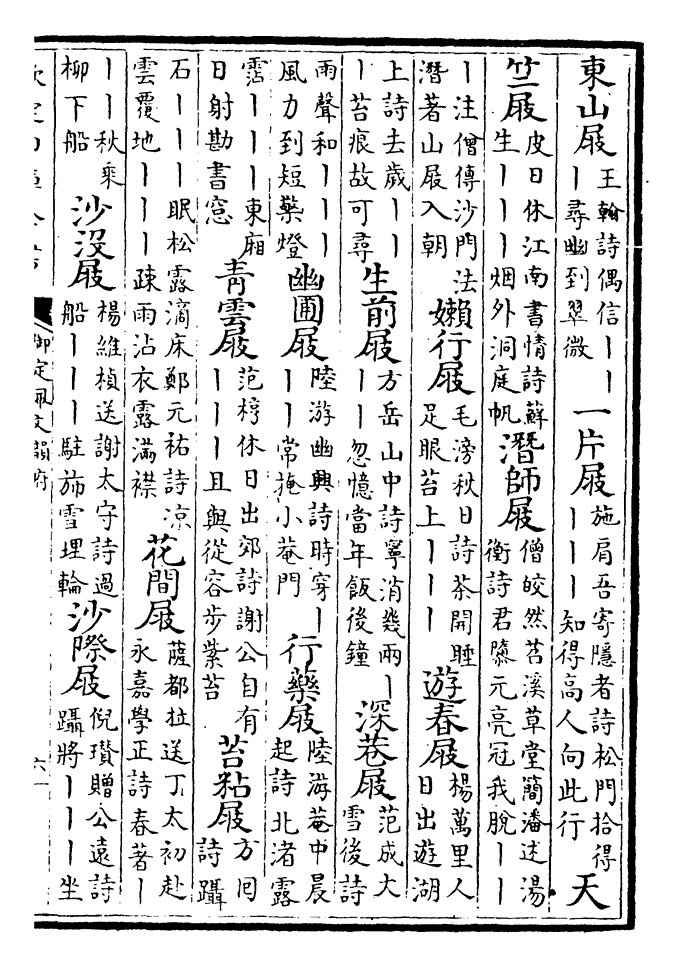 東山屐 王翰詩偶信丨丨丨尋幽到翠微 一片屐 施肩吾寄隱者詩松門拾得丨丨丨知得高人向此行 天
竺屐 皮日休江南書情詩蘇生丨丨丨烟外洞庭帆 潛師屐 僧皎然苕溪草堂簡潘述湯衡詩君隳元亮冠我脫丨丨
丨注僧傳沙門法潛著山屐入朝 嬾行屐 毛滂秋日詩茶開睡足眼苔上丨丨丨 遊春屐 楊萬里人日出遊湖
上詩去歲丨丨丨苔痕故可尋 生前屐 方岳山中詩寧消幾兩丨丨丨忽憶當年飯後鐘 深巷屐 范成大雪後詩
雨聲和丨丨丨風力到短檠燈 幽圃屐 陸游幽興詩時穿丨丨丨常掩小菴門 行藥屐 陸游菴中晨起詩北渚露
霑丨丨丨東廂日射勘書窓 青雲屐 范梈休日出郊詩謝公自有丨丨丨且與從容步紫苔 苔粘屐 方回詩躡
石丨丨丨眠松露滴床鄭元祐詩凉雲覆地丨丨丨疎雨沾衣露滿襟 花間屐 薩都拉送丁太初赴永嘉學正詩春著丨
丨丨秋乘柳下船 沙沒屐 楊維楨送謝太守詩過船丨丨丨駐斾雪埋輪 沙際屐 倪瓚贈公遠詩躡將丨丨丨坐
御定佩文韻府